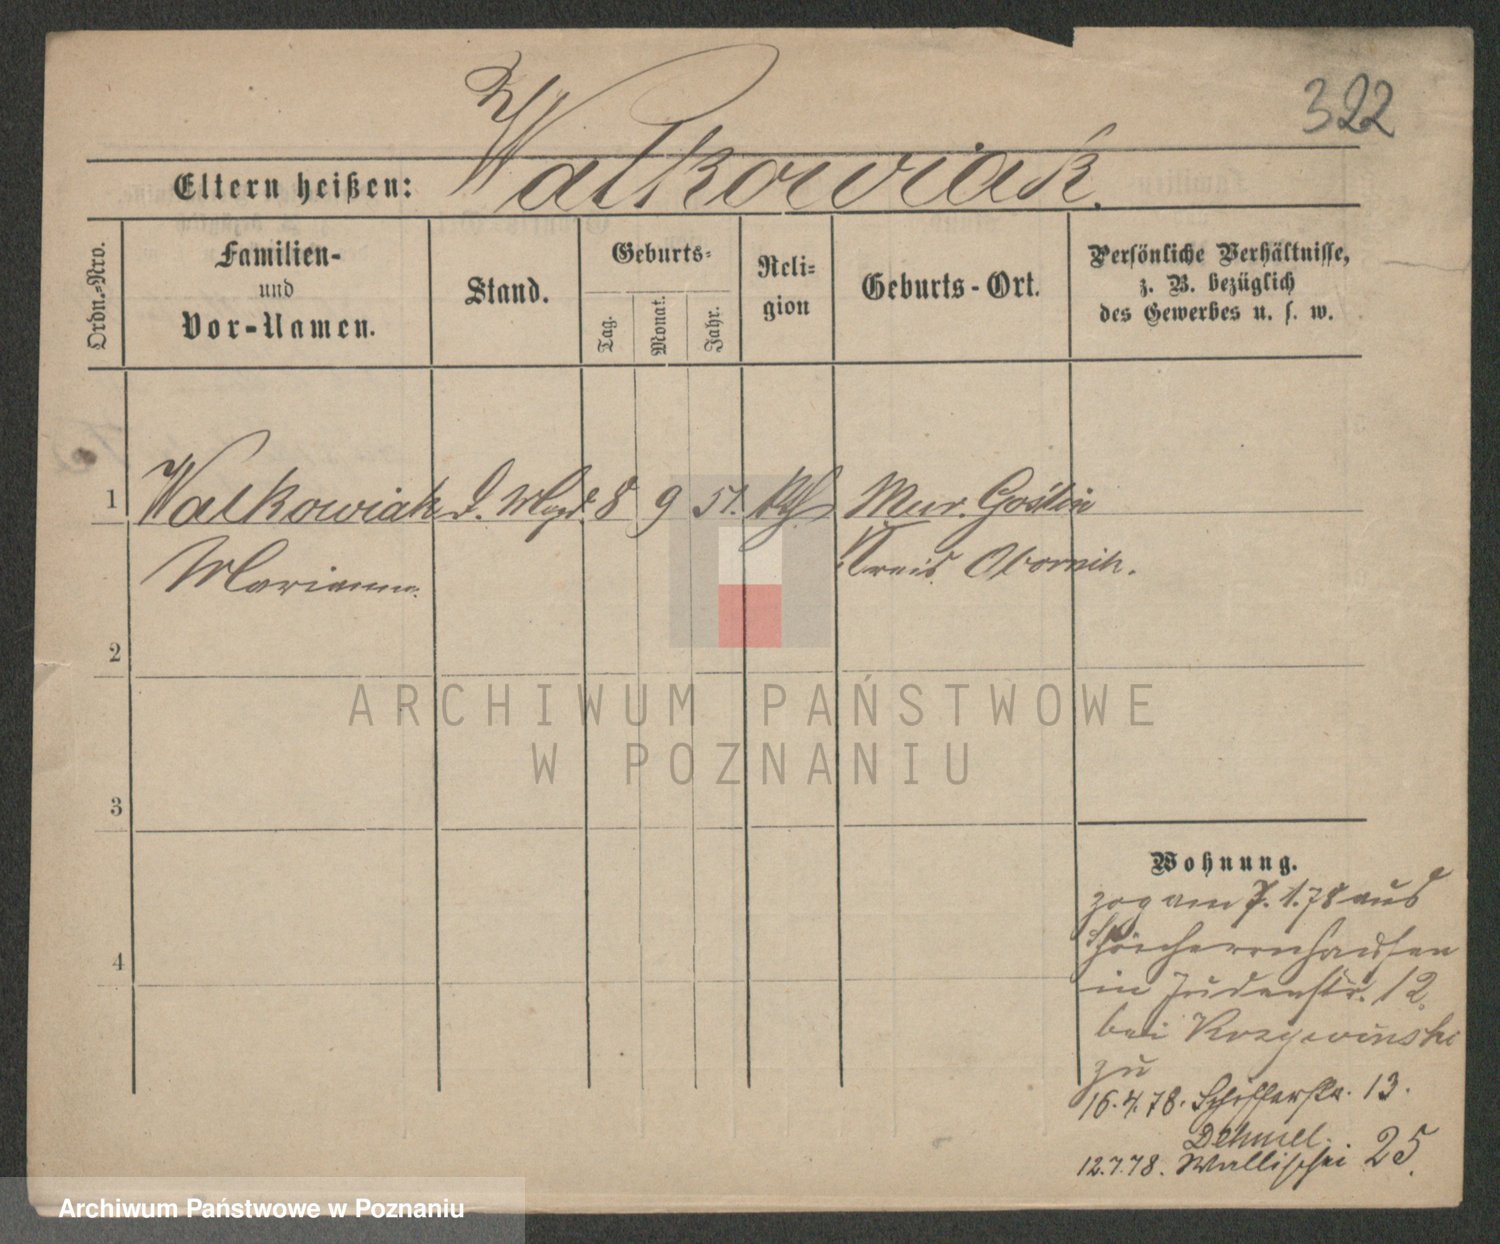 322
Eltern heißen: Walkowiak.
Ordn.-Nro.
Familien-
und
Vor-Namen.
Stand.
Geburts-
Tag.
Monat.
Jahr.
Reli-
gion
Geburts-Ort.
Persönliche Verhältnisse,
z. B. bezüglich
des Gewerbes u. s. w.
1 Walkowiak D. Magd. 8 9 51. kth. Mur. Goślin
Marianna. Kreis Obornik.
2
3
4
Wohnung.
zog am 7.1.78 aus
in Judenstr. 12.
bei
zu
16.4.78. Schifferstr. 13.
Dehmel.
12.7.78. Wallischei 25.
ARCHIWUM PAŃSTWOWE
W POZNANIU
Archiwum Państwowe w Poznaniu